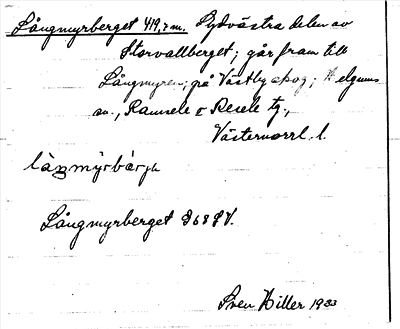 Långmyrberget 419,7 m. Sydvästra delen av
Storvallberget; går fram till
Långmyren; på Västbyskog; Helgums
sn., Ramsele o Resele tg.,
Västernorrl. l.
Långmyrberget 968 SV.
Sven Hiller 1933